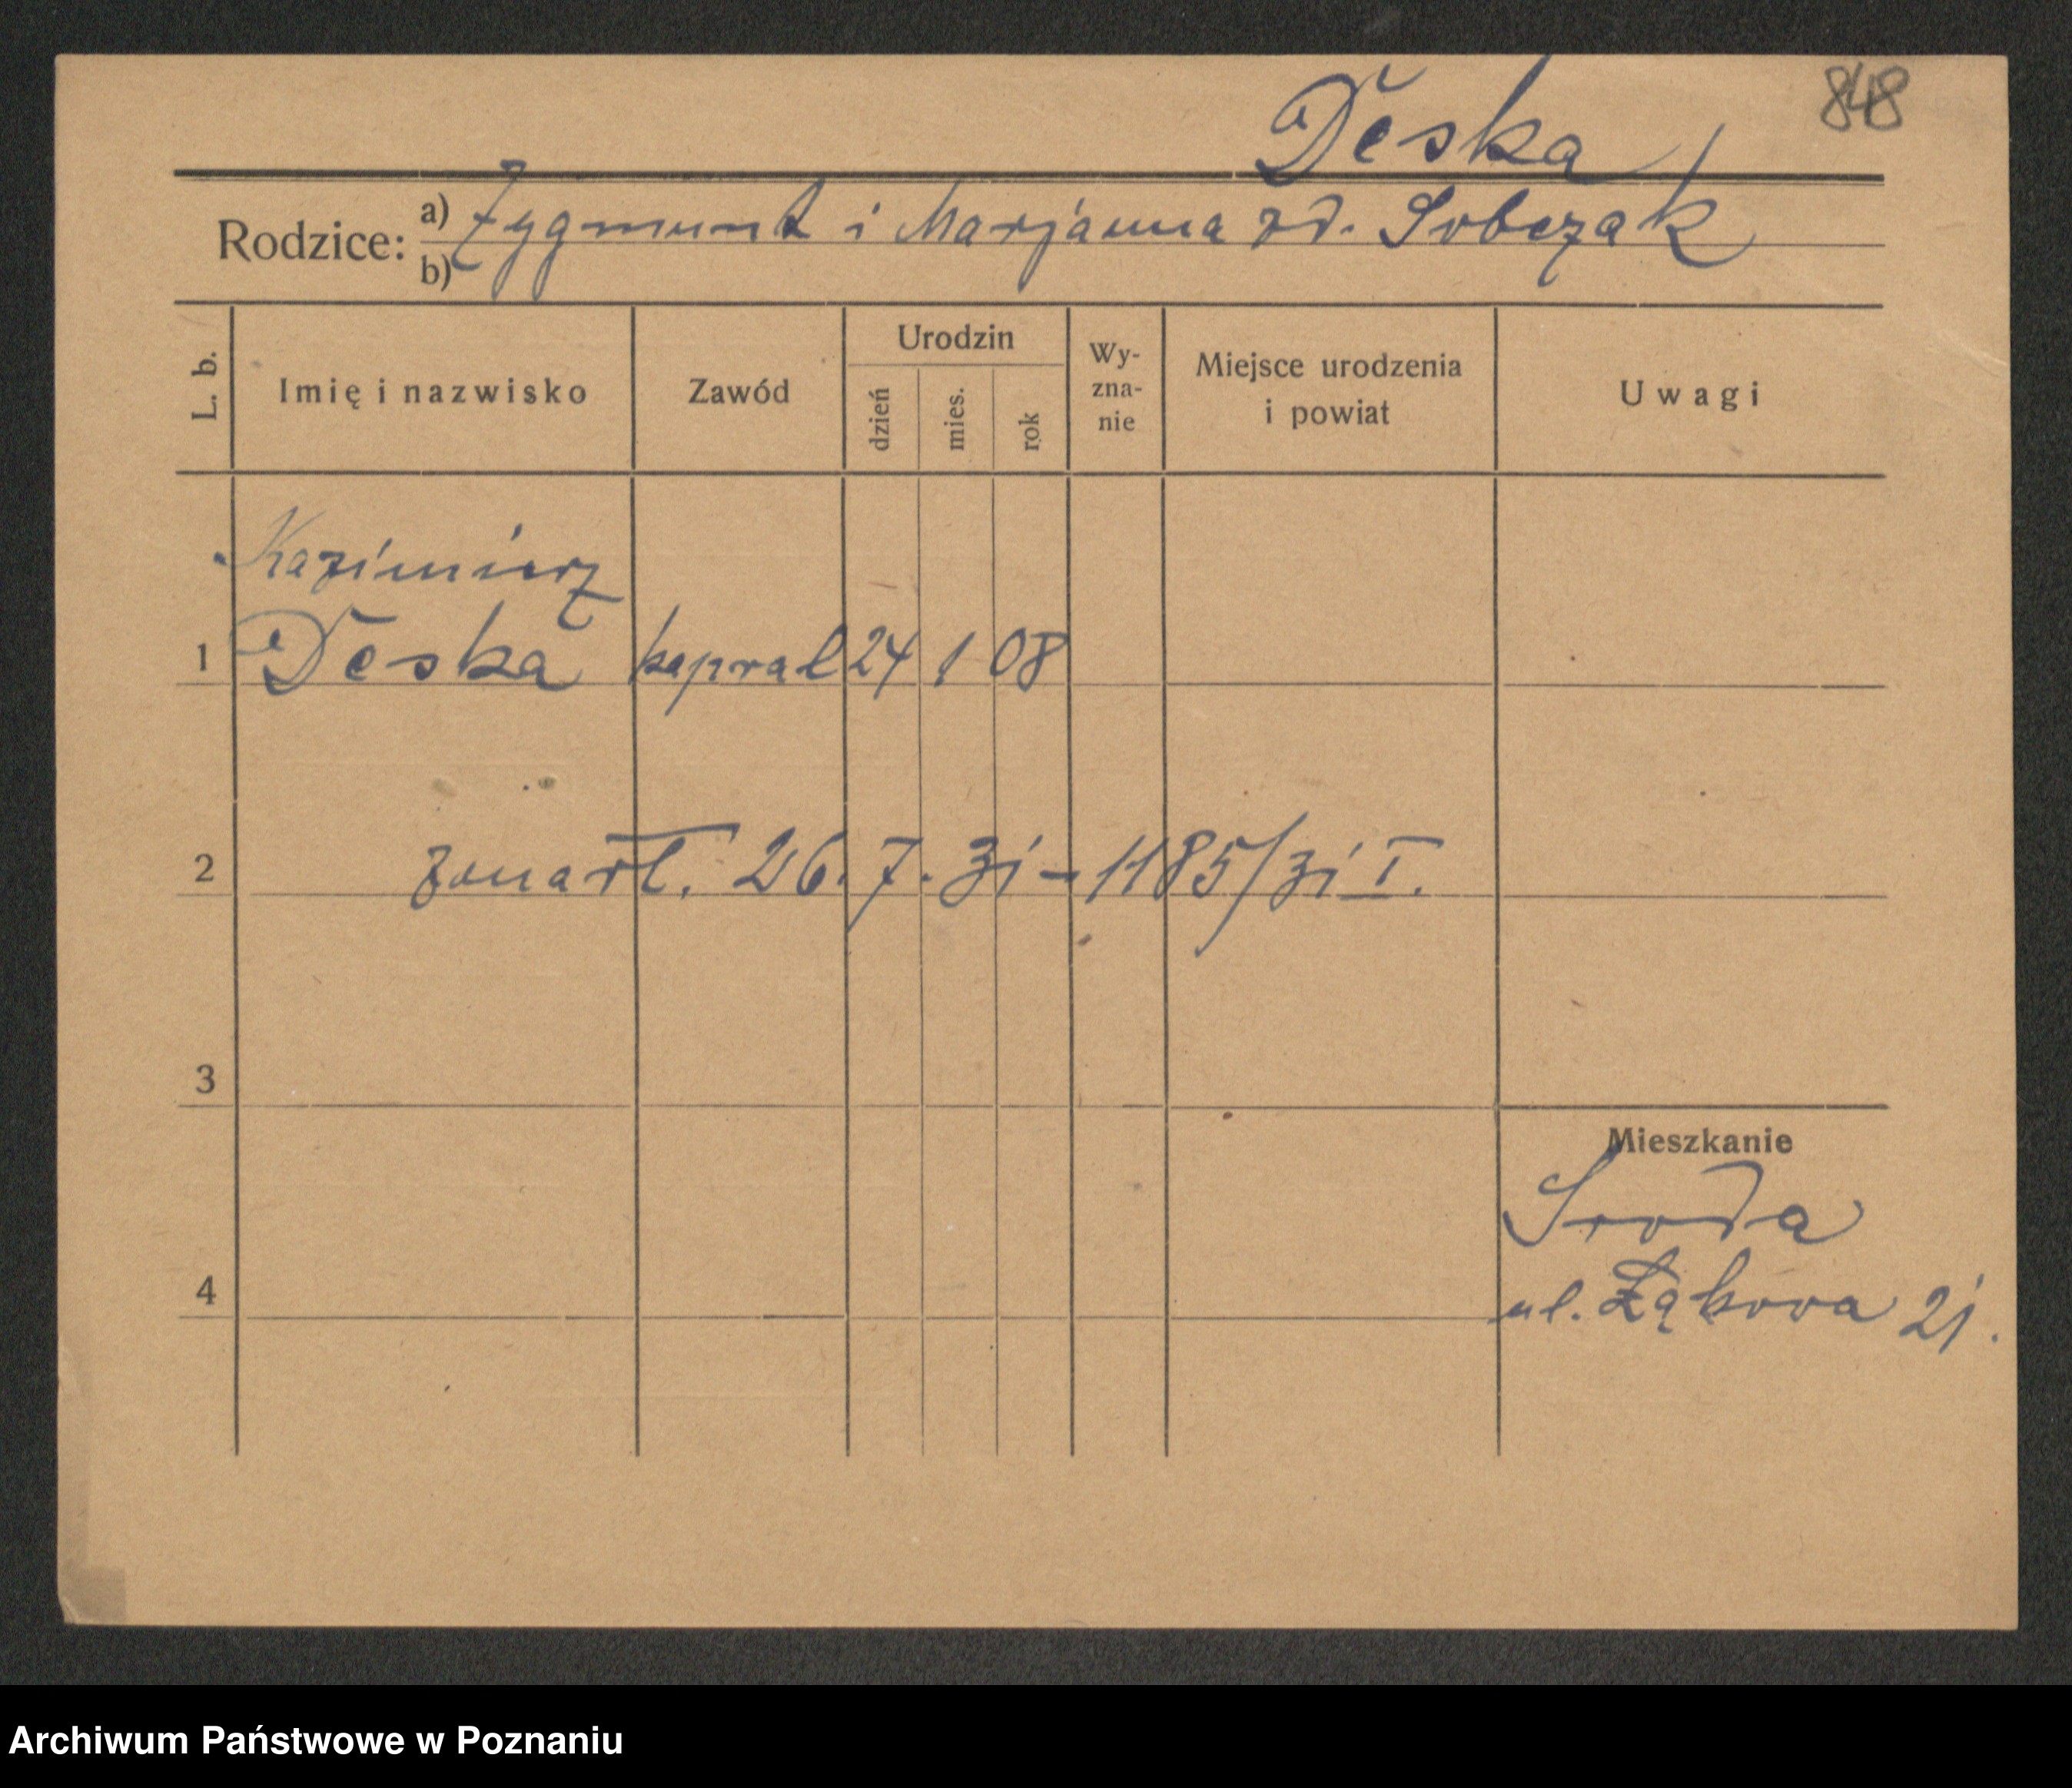 848
Deska
Rodzice: a) Zygmunt i Marjanna zd. Sobczak
b)
L. b. Imię i nazwisko Zawód Urodzin dzień mies. rok Wy-zna-nie Miejsce urodzenia i powiat Uwagi
Kazimierz
1 Deska kapral 24 1 08
2 zmarł. 26. 7. 31 - 1185/31 I.
3
Mieszkanie
Sroda
4 ul. Łąkowa 21.
Archiwum Państwowe w Poznaniu